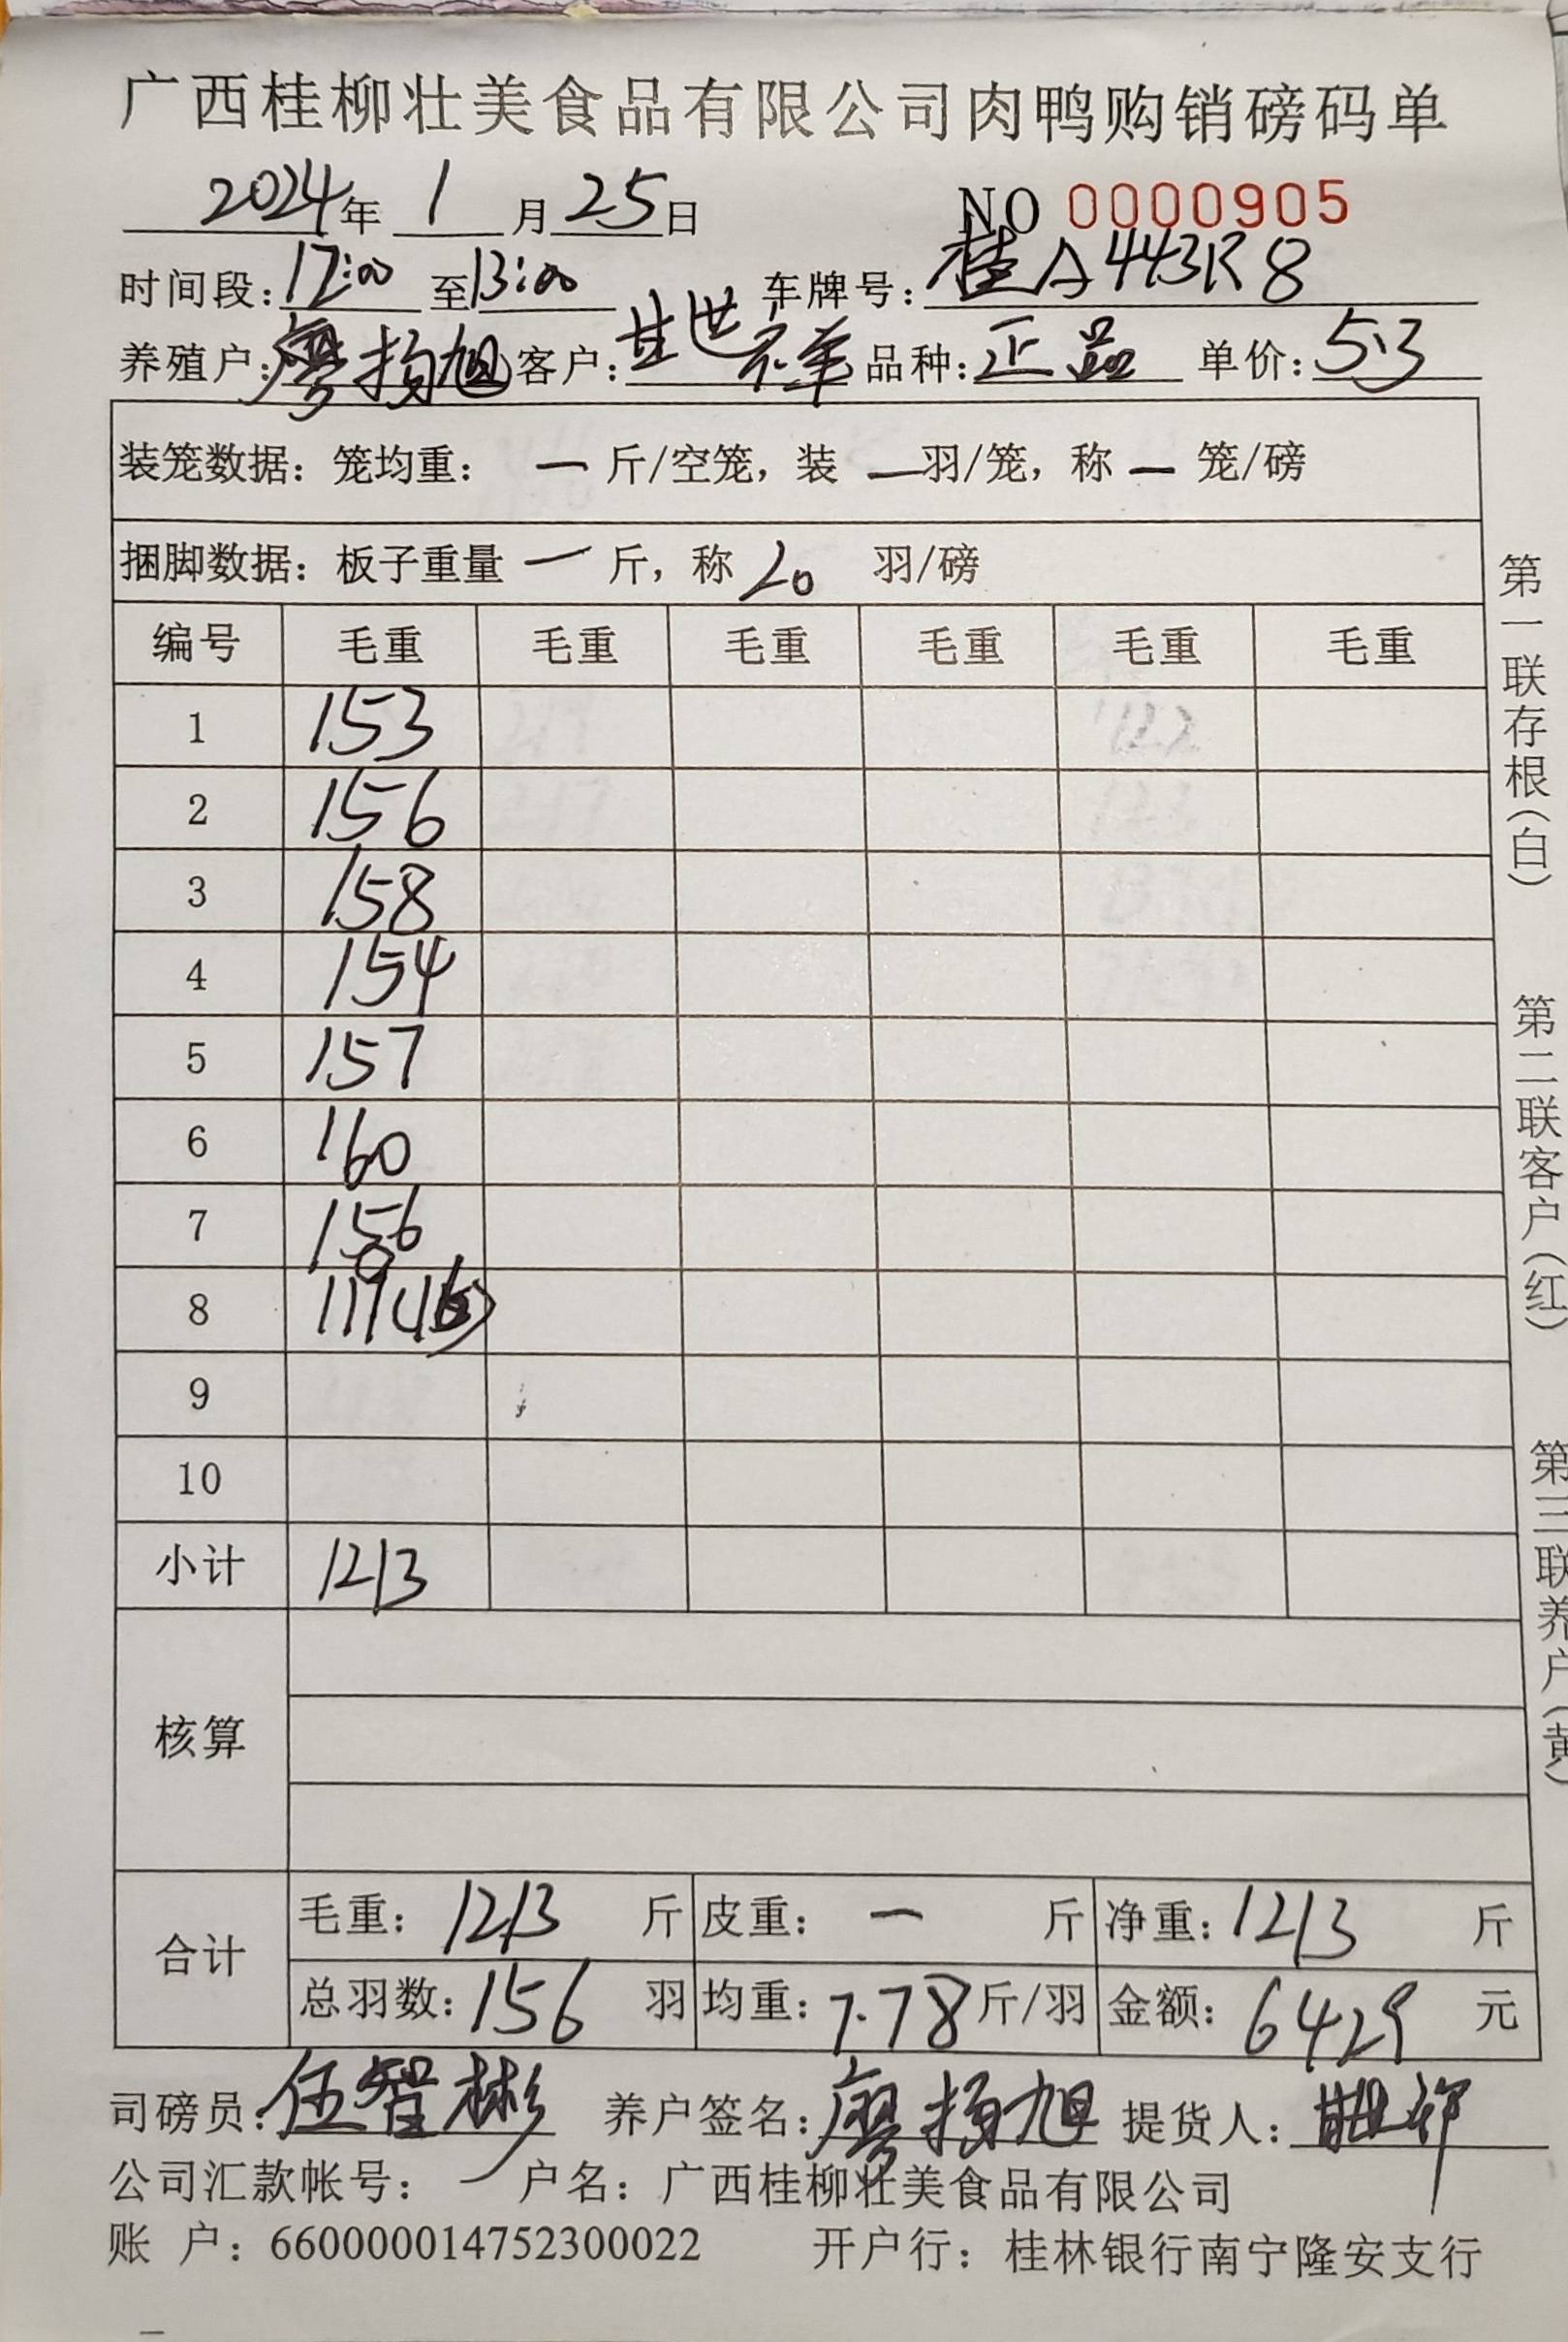 广西桂柳壮美食品有限公司肉鸭购销磅码单
2024年 1 月 25 日 NO 0000905
时间段: 12:00 至 13:00 车牌号: 桂A443R8
养殖户: 廖扬旭 客户: 甘世祥 品种: 正品 单价: 5.3
装笼数据: 笼均重: 一 斤/空笼, 装 一 羽/笼, 称 一 笼/磅
捆脚数据: 板子重量 一 斤, 称 20 羽/磅
编号 毛重 毛重 毛重 毛重 毛重 毛重
1 153
2 156
3 158
4 154
5 157
6 160
7 156
8 119
9
10
小计 1213
核算
合计
毛重: 1213 斤 皮重: 一 斤 净重: 1213 斤
总羽数: 156 羽 均重: 7.78 斤/羽 金额: 6429 元
司磅员: 伍智彬 养户签名: 廖扬旭 提货人:
公司汇款帐号: 户名: 广西桂柳壮美食品有限公司
账 户: 660000014752300022 开户行: 桂林银行南宁隆安支行
第一联存根(白)
第二联客户(红)
第三联养户(黄)